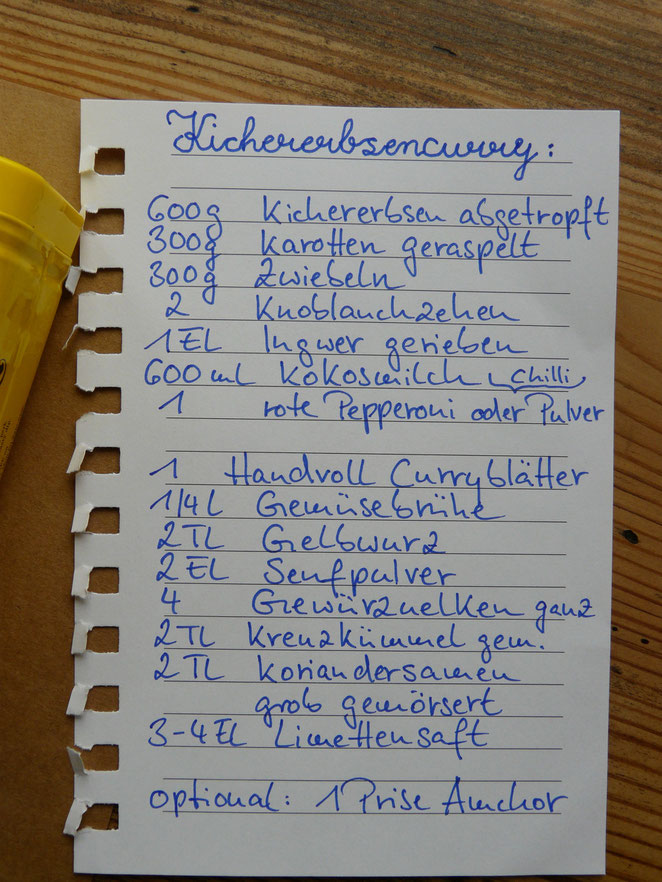 Kichererbsencurry:
600g Kichererbsen abgetropft
300g Karotten geraspelt
300g Zwiebeln
2 Knoblauchzehen
1 EL Ingwer gerieben
600 ml Kokosmilch Chilli
1 rote Pepperoni oder Pulver
1 Handvoll Curryblätter
1/4 L Gemüsebrühe
2 TL Gelbwurz
2 EL Senfpulver
4 Gewürznelken ganz
2 TL Kreuzkümmel gem.
2 TL Koriandersamen
grob gemörsert
3-4 EL Limettensaft
optional: 1 Prise Amchor